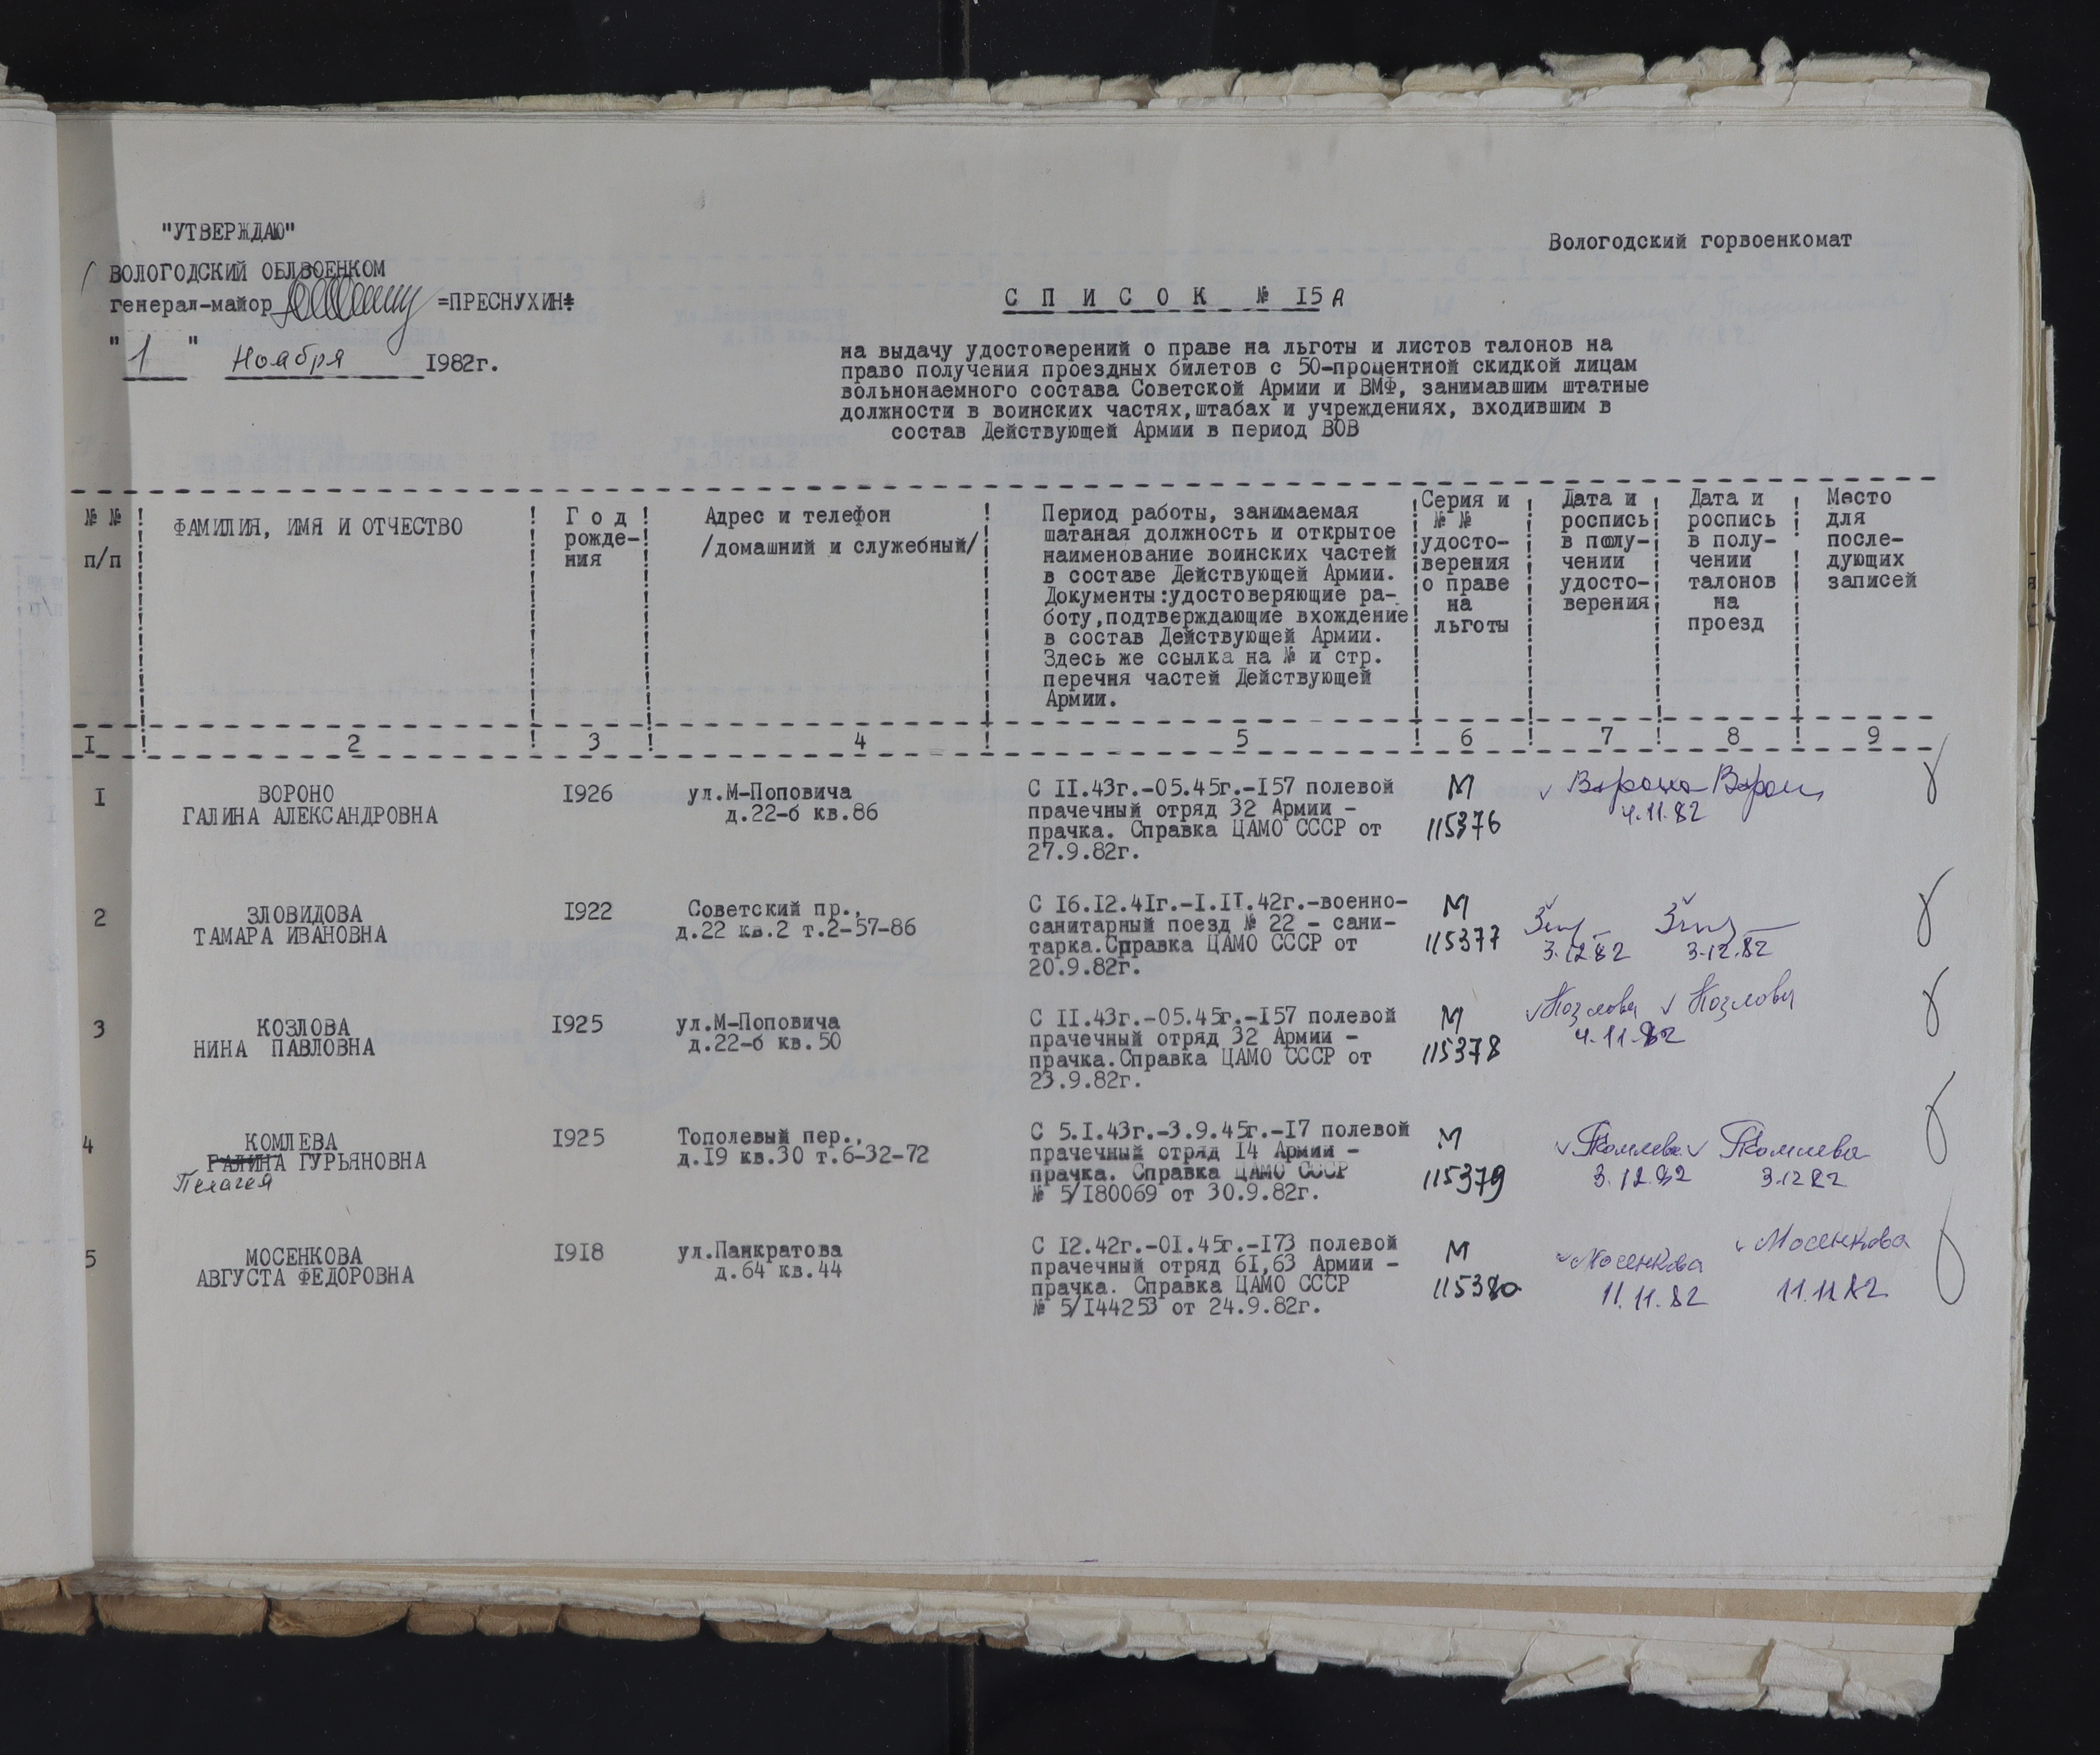 "УТВЕРЖДАЮ"
Вологодский горвоенкомат
ВОЛОГОДСКИЙ ОБЛВОЕНКОМ
генерал-майор =ПРЕСНУХИН=
"1" Ноября 1982г.
СПИСОК № 15А
на выдачу удостоверений о праве на льготы и листов талонов на
право получения проездных билетов с 50-процентной скидкой лицам
вольнонаемного состава Советской Армии и ВМФ, занимавшим штатные
должности в воинских частях, штабах и учреждениях, входившим в
состав Действующей Армии в период ВОВ
№ №
п/п
ФАМИЛИЯ, ИМЯ И ОТЧЕСТВО
Год
рожде-
ния
Адрес и телефон
/домашний и служебный/
Период работы, занимаемая
шатаная должность и открытое
наименование воинских частей
в составе Действующей Армии.
Документы:удостоверяющие ра-
боту,подтверждающие вхождение
в состав Действующей Армии.
Здесь же ссылка на № и стр.
перечня частей Действующей
Армии.
Серия и
№ №
удосто-
верения
о праве
на
льготы
Дата и
роспись
в полу-
чении
удосто-
верения
Дата и
роспись
в полу-
чении
талонов
на
проезд
Место
для
после-
дующих
записей
1 2 3 4 5 6 7 8 9
1
ВОРОНО
ГАЛИНА АЛЕКСАНДРОВНА
1926
ул.М-Поповича
д.22-б кв.86
С 11.43г.-05.45г.-157 полевой
прачечный отряд 32 Армии -
прачка. Справка ЦАМО СССР от
27.9.82г.
М
115376
4.11.82
2
ЗЛОВИДОВА
ТАМАРА ИВАНОВНА
1922
Советский пр.,
д.22 кв.2 т.2-57-86
С 16.12.41г.-1.11.42г.-военно-
санитарный поезд № 22 - сани-
тарка.Справка ЦАМО СССР от
20.9.82г.
М
115377
3.12.82
3.12.82
3
КОЗЛОВА
НИНА ПАВЛОВНА
1925
ул.М-Поповича
д.22-б кв.50
С 11.43г.-05.45г.-157 полевой
прачечный отряд 32 Армии -
прачка.Справка ЦАМО СССР от
23.9.82г.
М
115378
Козлова Козлова
4.11.82
4
КОМЛЕВА
ГАЛИНА ГУРЬЯНОВНА
Пелагея
1925
Тополевый пер.,
д.19 кв.30 т.6-32-72
С 5.1.43г.-3.9.45г.-17 полевой
прачечный отряд 14 Армии -
прачка. Справка ЦАМО СССР
№ 5/180069 от 30.9.82г.
М
115379
Комлева Комлева
3.12.82
3.12 82
5
МОСЕНКОВА
АВГУСТА ФЕДОРОВНА
1918
ул.Панкратова
д.64 кв.44
С 12.42г.-01.45г.-173 полевой
прачечный отряд 61,63 Армии -
прачка. Справка ЦАМО СССР
№ 5/144253 от 24.9.82г.
М
115380
Мосенкова Мосенкова
11.11.82
11.11.82